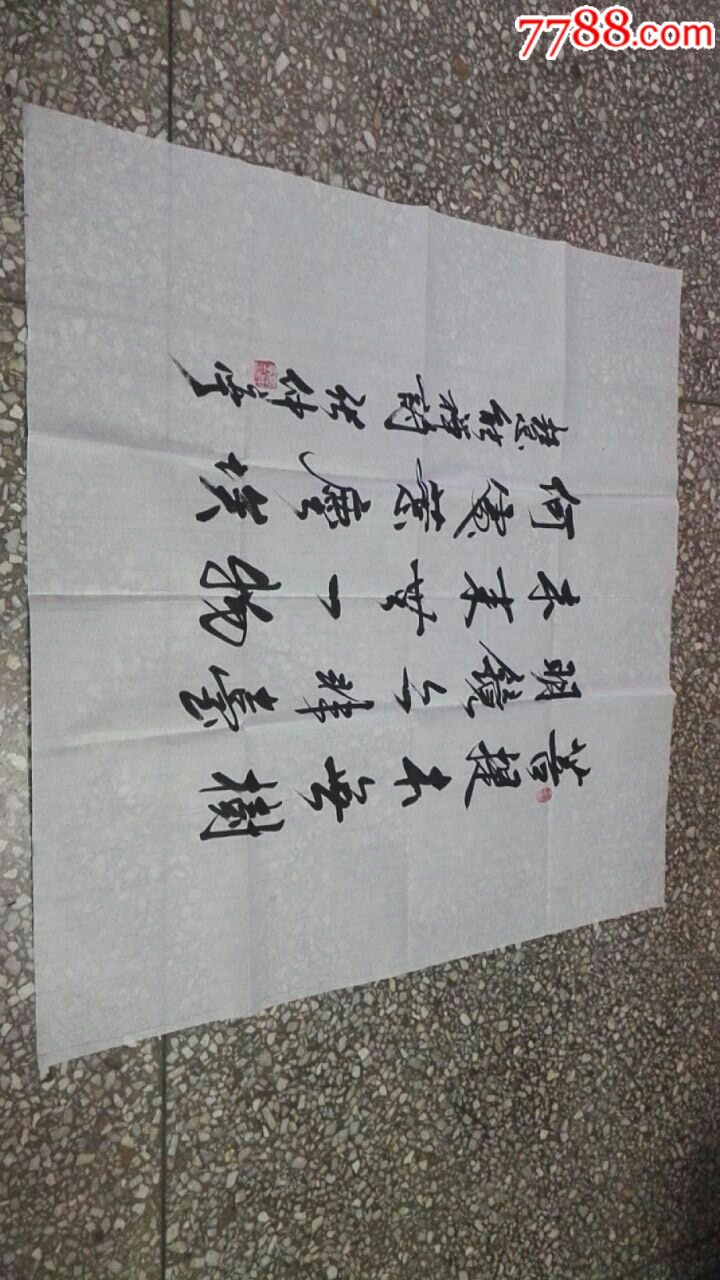 7788.com
菩提本無樹
明鏡亦非臺
本來無一物
何處惹塵埃
慧能禅詩